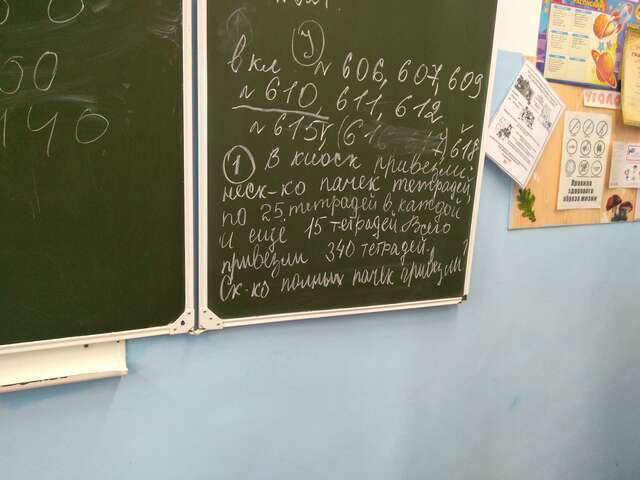 50
140
вкл № 606, 607, 609
№ 610, 611, 612
№ 615, 618
1 В киоск привезли
неск-ко пачек тетрадей,
по 25 тетрадей в каждой
и ещё 15 тетрадей. Всего
привезли 340 тетрадей.
Ск-ко полных пачек привезли?
Расписание
УГОЛО
Правила
здорового
образа жизни